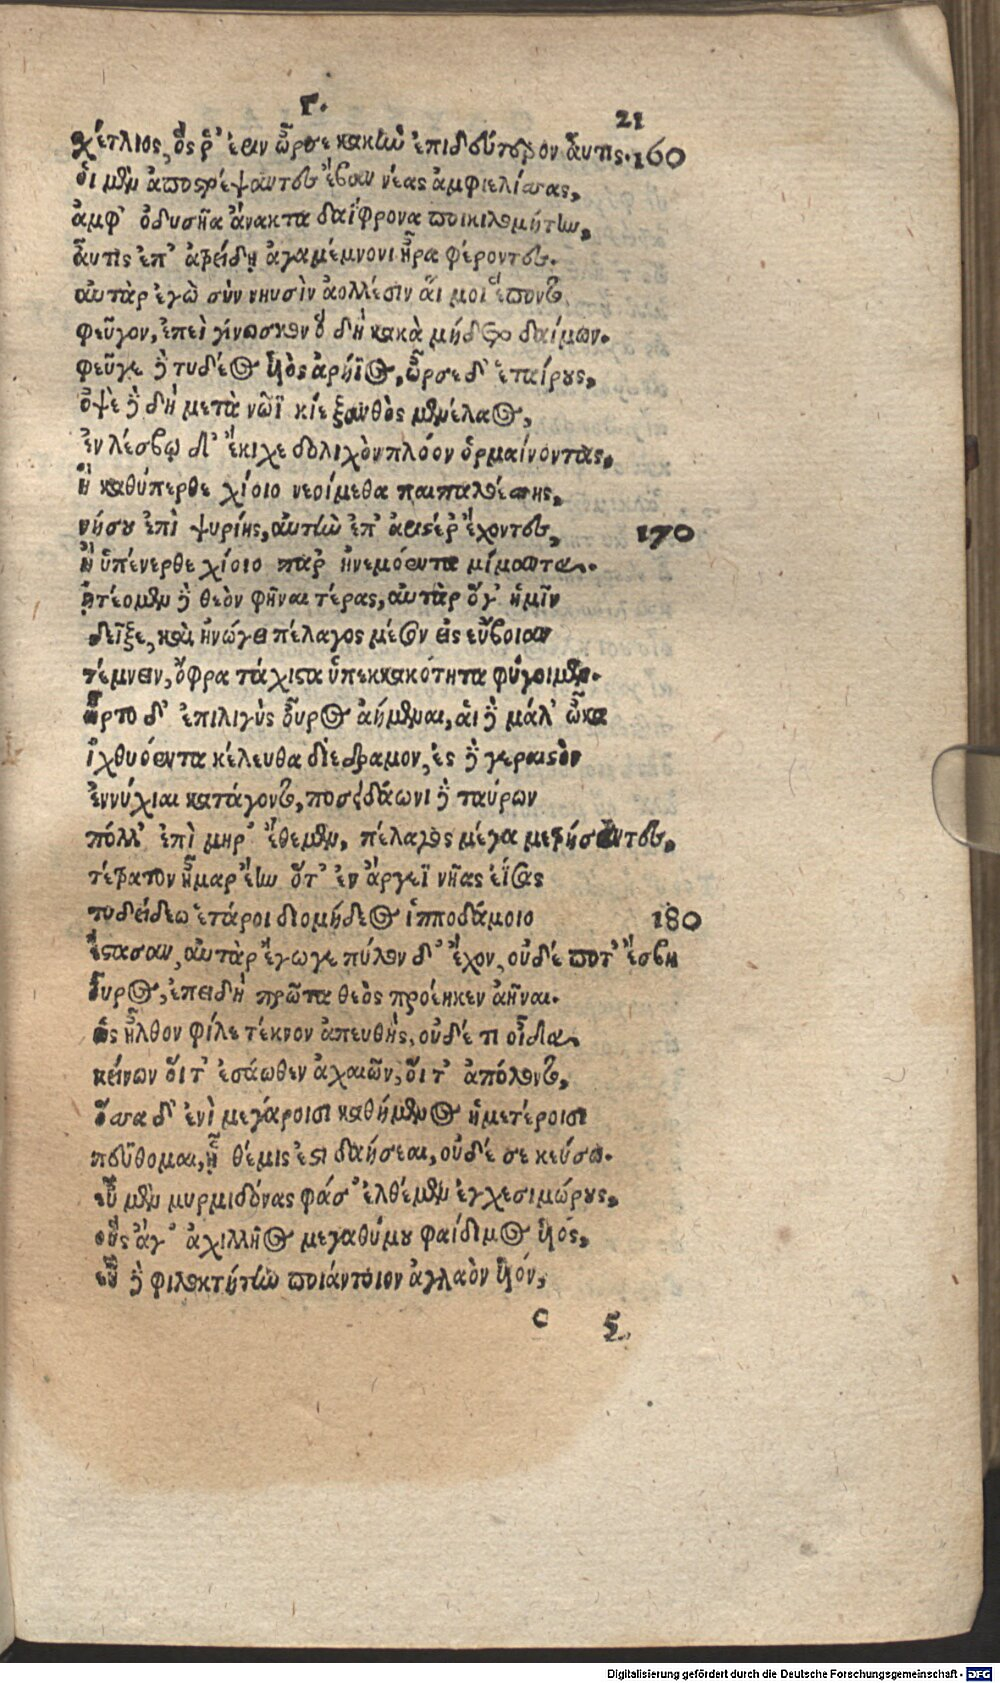 Γ. 21
σχέτλιος, ὅς ῥ' ἔριν ὦρσε κακὴν ἐπιδεύτερον αὖτις. 160
οἱ μὲν ἀποστρέψαντες ἔβαν νέας ἀμφιελίσσας,
ἀμφ' ὀδυσῆα ἄνακτα δαΐφρονα ποικιλομήτην,
αὖτις ἐπ' ἀτρείδῃ ἀγαμέμνονι ἦρα φέροντες.
αὐτὰρ ἐγὼ σὺν νηυσὶν ἀολλέσιν αἵ μοι ἕποντο,
φεῦγον, ἐπεὶ γίνωσκον ὃ δὴ κακὰ μήδετο δαίμων.
φεῦγε δὲ τυδέος υἱὸς ἀρήϊος, ὦρσε δ' ἑταίρους,
ὀψὲ δὲ δὴ μετὰ νῶϊ κίε ξανθὸς μενέλαος,
ἐν λέσβῳ δ' ἔκιχε δολιχὸν πλόον ὁρμαίνοντας,
ἢ καθύπερθε χίοιο νεοίμεθα παιπαλοέσσης,
νήσου ἐπὶ ψυρίης, αὐτὴν ἐπ' ἀριστέρ' ἔχοντες, 170
ἢ ὑπένερθε χίοιο παρ' ἠνεμόεντα μίμαντα.
ᾐτέομεν δὲ θεὸν φῆναι τέρας, αὐτὰρ ὅγ' ἡμῖν
δεῖξε, καὶ ἠνώγει πέλαγος μέσον εἰς εὔβοιαν
τέμνειν, ὄφρα τάχιστα ὑπεκκακότητα φύγοιμεν.
ὦρτο δ' ἐπιλιγὺς οὖρος ἀήμεναι, αἱ δὲ μάλ' ὦκα
ἰχθυόεντα κέλευθα διέδραμον, ἐς δὲ γεραιστὸν
ἐννύχιαι κατάγοντο, ποσειδάωνι δὲ ταύρων
πόλλ' ἐπὶ μηρ' ἔθεμεν, πέλαγος μέγα μετρήσαντες,
τέτρατον ἦμαρ ἔην ὅτ' ἐν ἄργεϊ νῆας ἐΐσας
τυδείδεω ἕταροι διομήδεος ἱπποδάμοιο 180
ἔστασαν, αὐτὰρ ἔγωγε πύλον δ' ἔχον, οὐδέ ποτ' ἔσβη
οὖρος, ἐπειδὴ πρῶτα θεὸς προέηκεν ἀῆναι.
ὣς ἦλθον φίλε τέκνον ἀπευθὴς, οὐδέ τι οἶδα
κείνων οἵ τ' ἐσάωθεν ἀχαιῶν, οἵ τ' ἀπόλοντο,
ὅσσα δ' ἐνὶ μεγάροισι καθήμενος ἡμετέροισι
πεύθομαι, ᾗ θέμις ἐστὶ δαήσεαι, οὐδέ σε κεύσω.
εὖ μὲν μυρμιδόνας φάσ' ἐλθέμεν ἐγχεσιμώρους,
οὓς ἄγ' ἀχιλλῆος μεγαθύμου φαίδιμος υἱός,
εὖ δὲ φιλοκτήτην ποιάντιον ἀγλαὸν υἱόν,
C 5
Digitalisierung gefördert durch die Deutsche Forschungsgemeinschaft - DFG